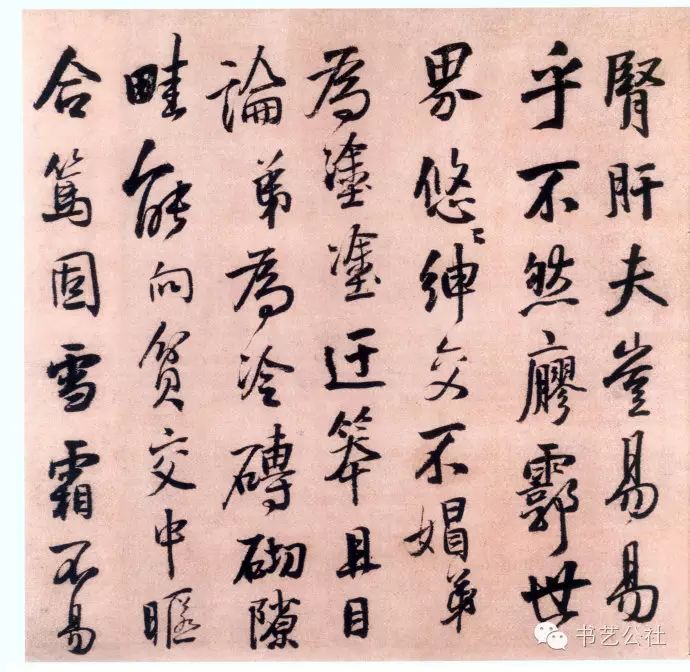 腎肝夫豈易易
乎不然霩世
界悠々紳交不媢弟
為塗塗迂筭且目
論弟為冷磚砌隙
畦能向貧交中
合篤固雪霜不易
书艺公社